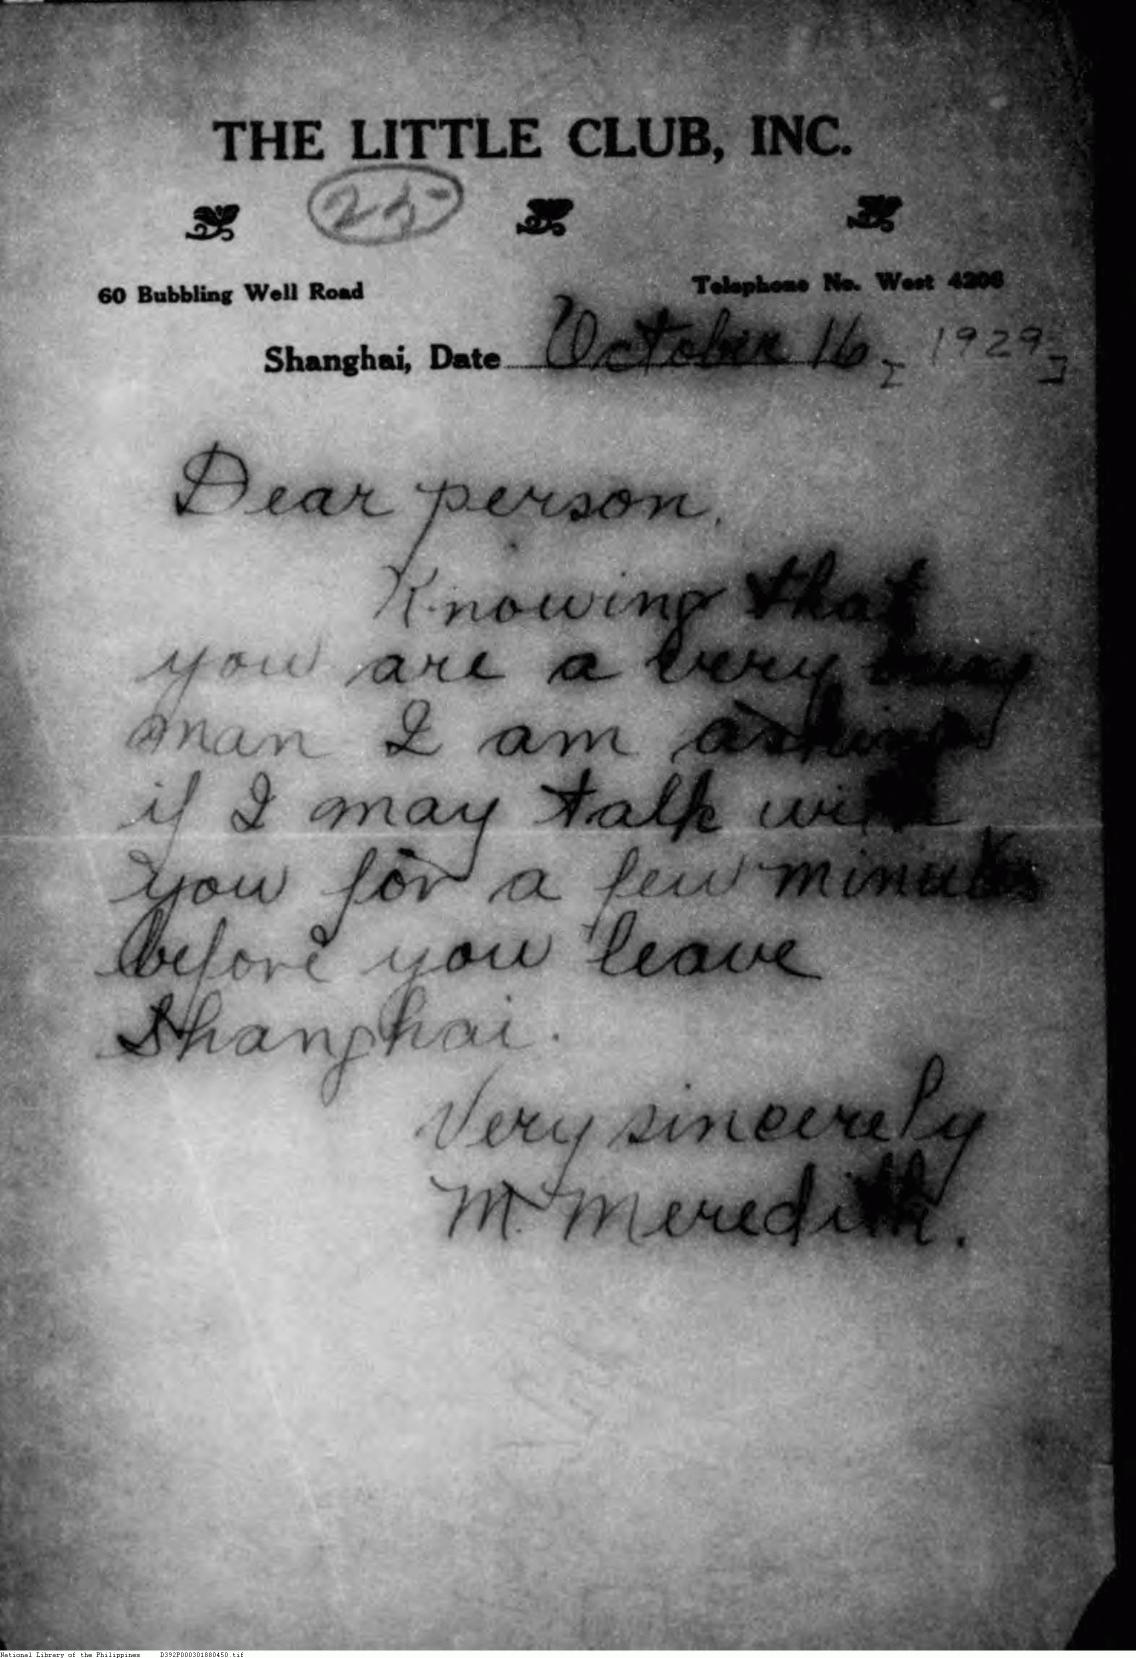 THE LITTLE CLUB, INC.
25
60 Bubbling Well Road
Telephone No. West 4206
Shanghai, Date October 16, [1929]
Dear person,
Knowing that
you are a very busy
man I am asking
if I may talk with
you for a few minutes
before you leave
Shanghai.
Very sincerely
M. Meredith.
National Library of the Philippines D392P000301880450.tif